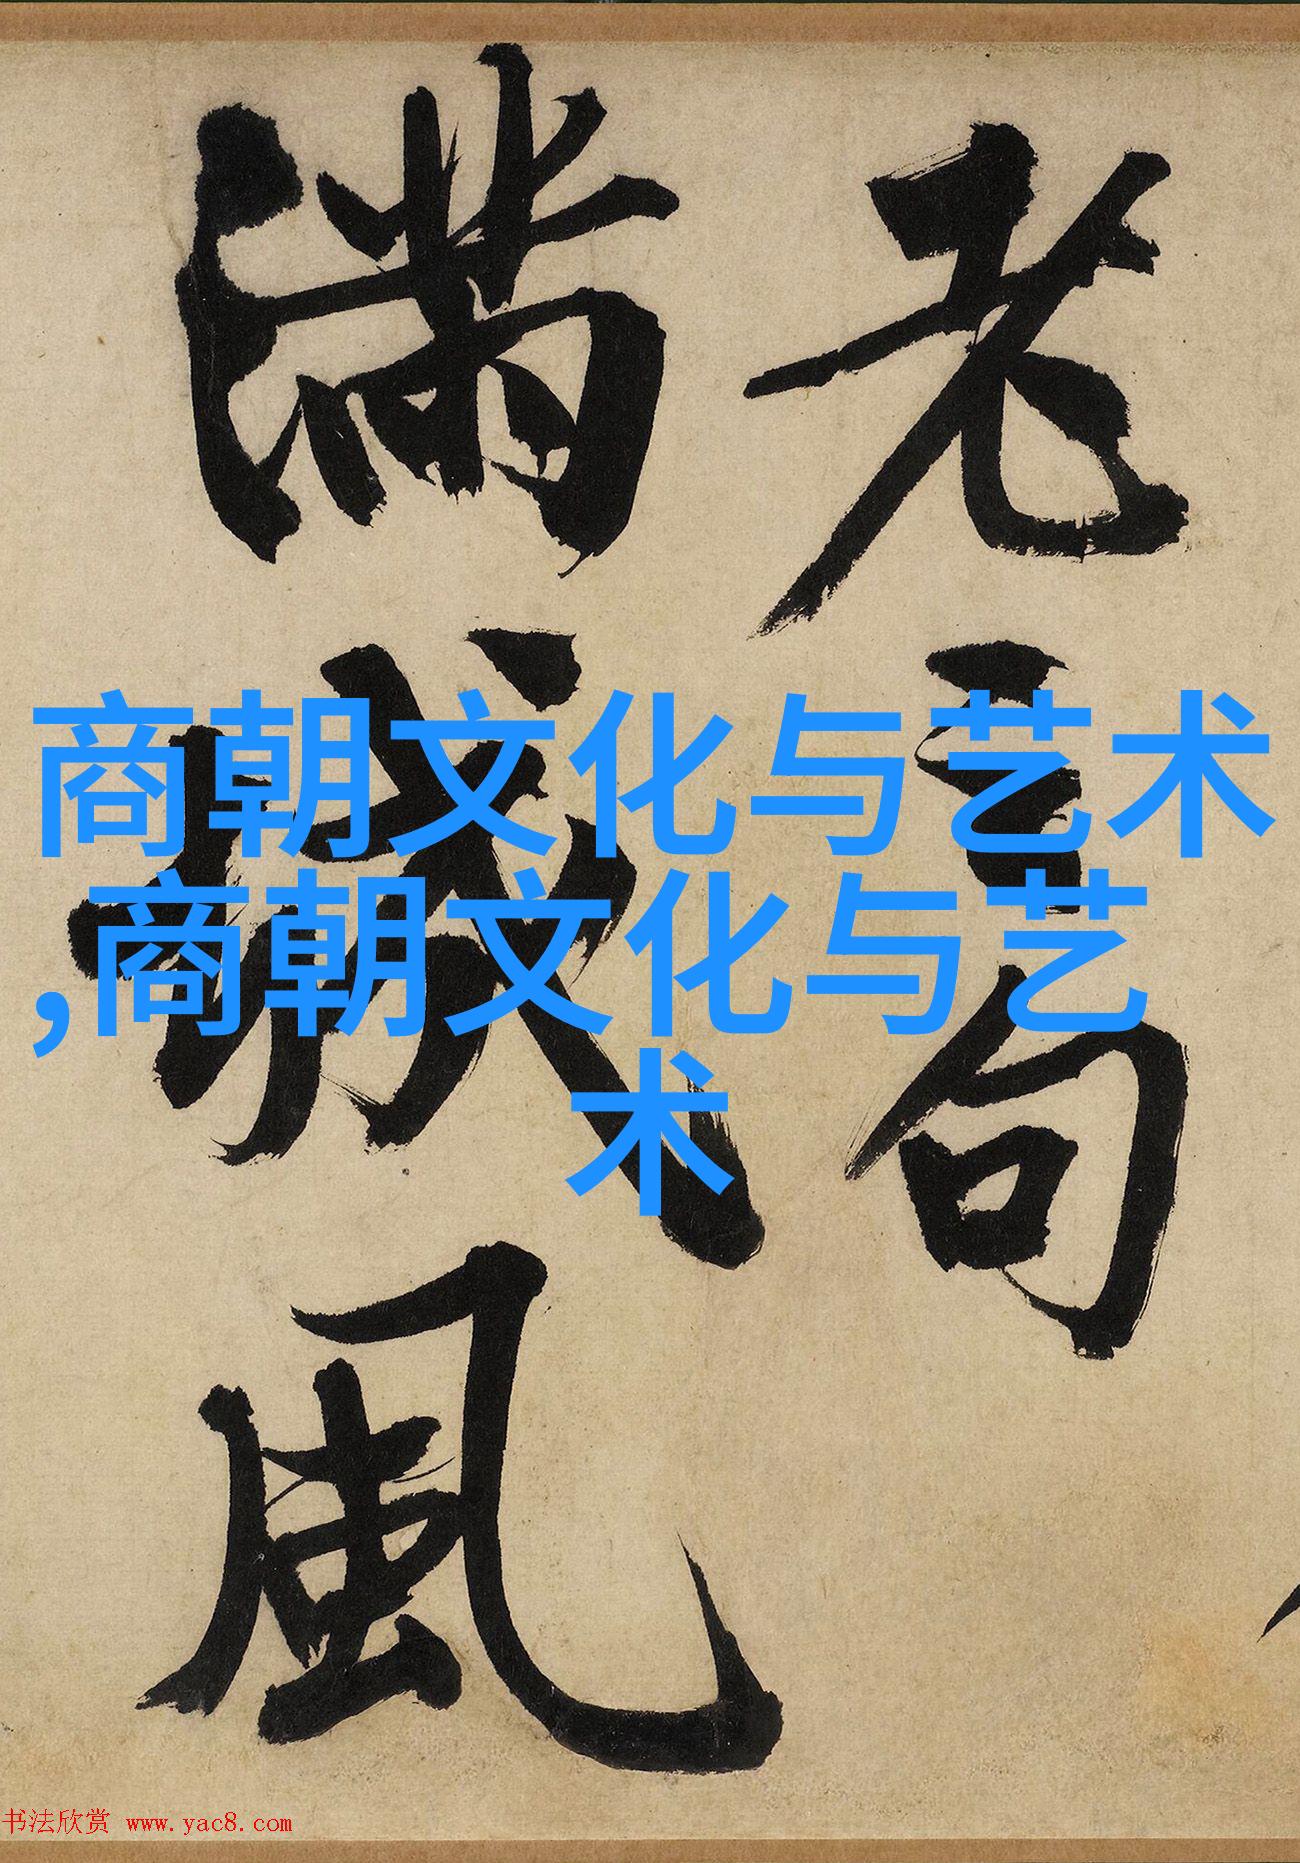 老句
滿城風
商朝文化与艺术
,商朝文化与艺
术
书法欣赏 www.yac8.com